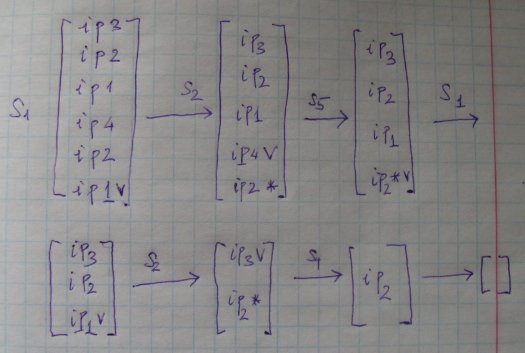 S1 [ip3 ip2 ip1 ip4 ip2 ip1v] S2 → [ip3 ip2 ip1 ip4v ip2*] S5 → [ip3 ip2 ip1 ip2*v] S1 →
[ip3 ip2 ip1v] S2 → [ip3v ip2*] → [ip2] → [ ]